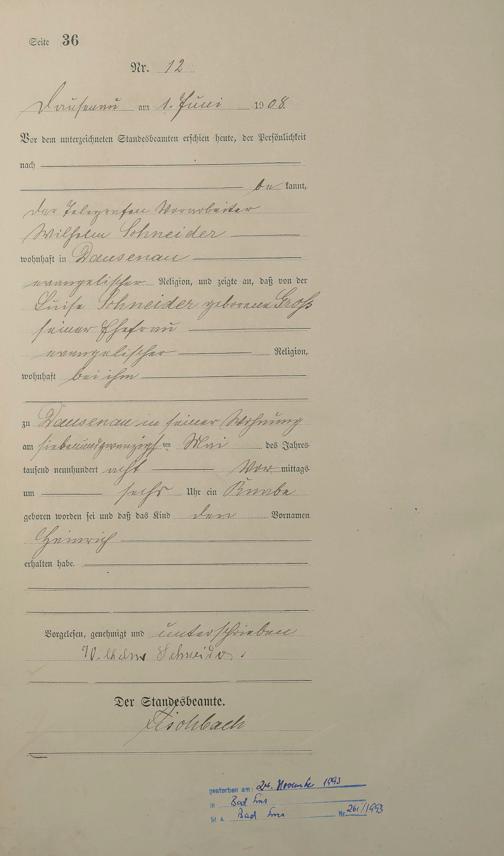 Seite 36
Nr. 12
Dausenau am 1. Juni 1908.
Vor dem unterzeichneten Standesbeamten erschien heute, der Persönlichkeit
nach
be kannt,
der Telegrafen Vorarbeiter
Wilhelm Schneider
wohnhaft in Dausenau
evangelischer Religion, und zeigte an, daß von der
Luise Schneider geborene Groß
seiner Ehefrau
evangelischer Religion,
wohnhaft bei ihm
zu Dausenau in seiner Wohnung
am siebenundzwanzigsten Mai des Jahres
tausend neunhundert acht Vor mittags
um sechs Uhr ein Knabe
geboren worden sei und daß das Kind den Vornamen
Heinrich
erhalten habe.
Vorgelesen, genehmigt und unterschrieben
Wilhelm Schneider.
Der Standesbeamte.
Fischbach
gestorben am: 24. November 1993
in Bad Ems
St A. Bad Ems Nr. 261/1993